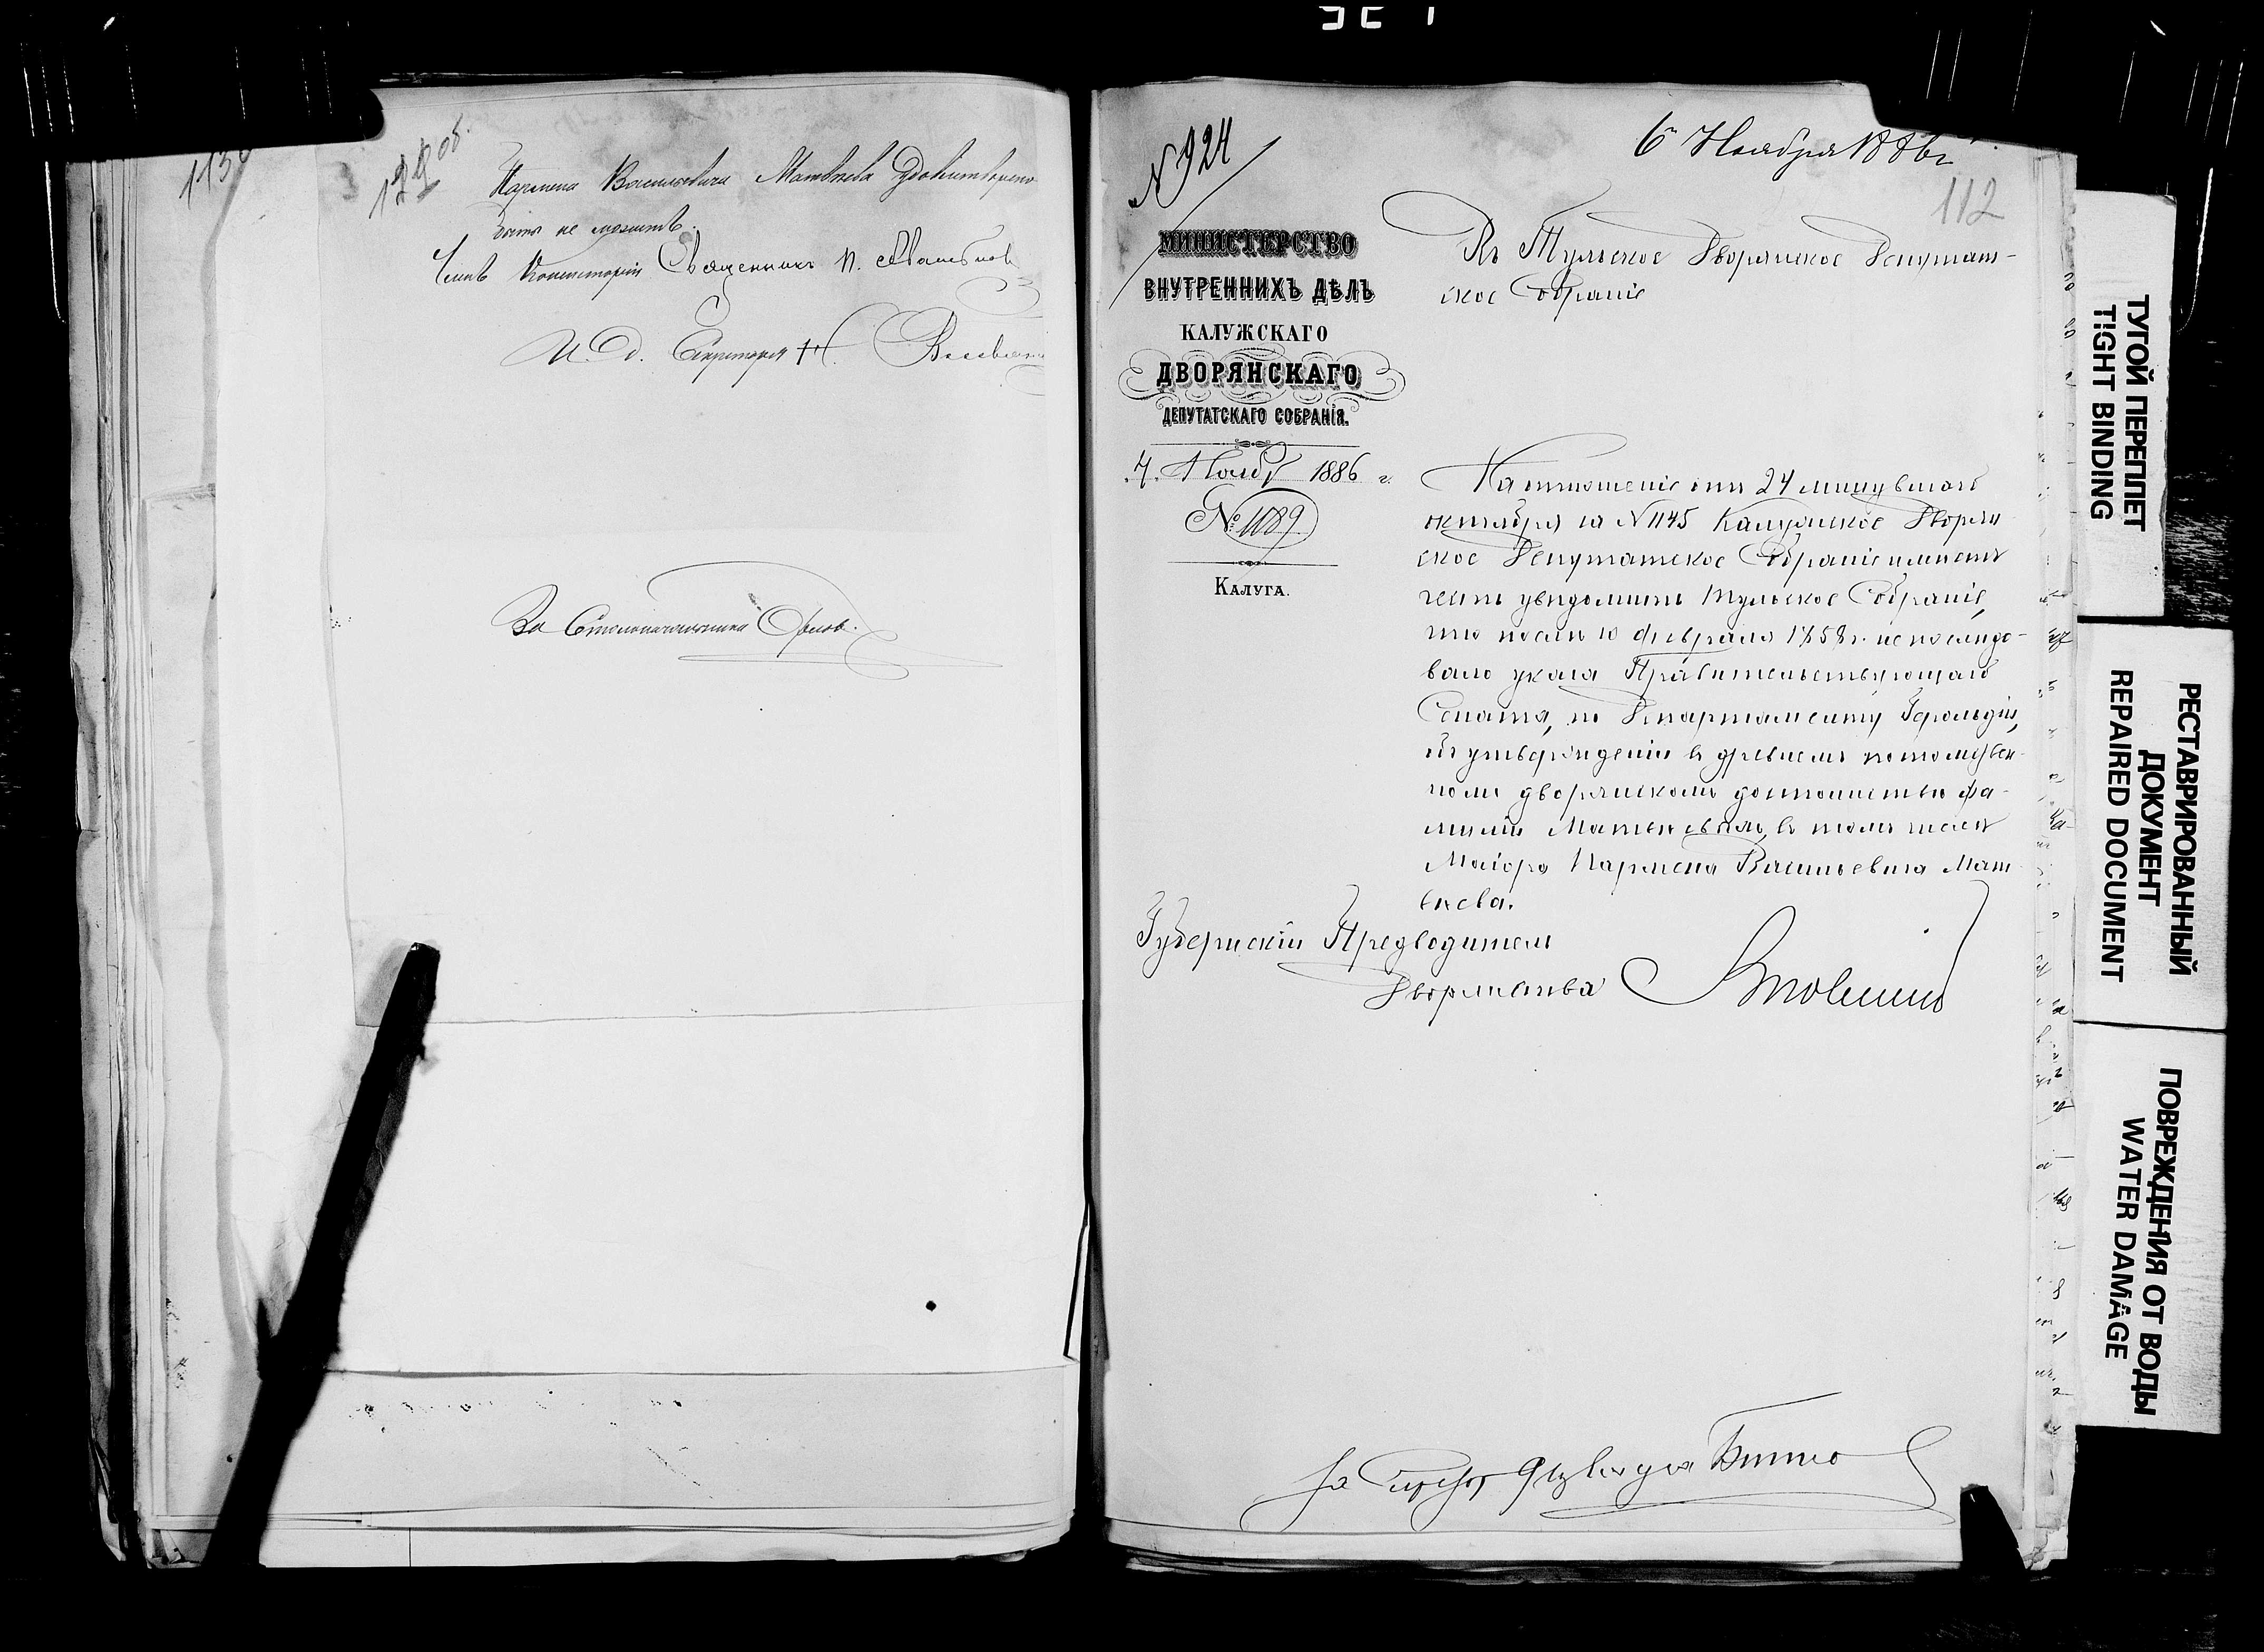 122 об.
Пармена Васильевича Матвѣева удовлетворено
быть не можетъ.
Членъ Консисторіи Священникъ П.
И. Д. Секретаря Н.
За Столоначальника Орловъ.
N 924
6 Ноября 1886 г.
112
МИНИСТЕРСТВО
ВНУТРЕННИХЪ ДѢЛЪ
КАЛУЖСКАГО
ДВОРЯНСКАГО
ДЕПУТАТСКАГО СОБРАНІЯ.
4. Ноября 1886 г.
№ 1089
КАЛУГА.
Въ Тульское Дворянское Депутат-
ское Собраніе
На отношеніе отъ 24 минувшаго
октября за N 1145 Калужское Дворян
ское Депутатское Собраніе имѣетъ
честь увѣдомить Тульское Собраніе,
что послѣ 10 февраля 1858 г. не послѣдо-
вало указа Правительствующаго
Сената, по Департаменту Герольдіи,
объ утвержденіи въ древнемъ потомствен-
номъ дворянскомъ достоинствѣ фа-
миліи Матвѣевыхъ, въ томъ числѣ
Маіора Пармена Васильевича Мат
вѣева.
Губернскій Предводитель
Дворянства
За Секрет
ТУГОЙ ПЕРЕПЛЕТ
TIGHT BINDING
РЕСТАВРИРОВАННЫЙ
ДОКУМЕНТ
REPAIRED DOCUMENT
ПОВРЕЖДЕНИЯ ОТ ВОДЫ
WATER DAMAGE